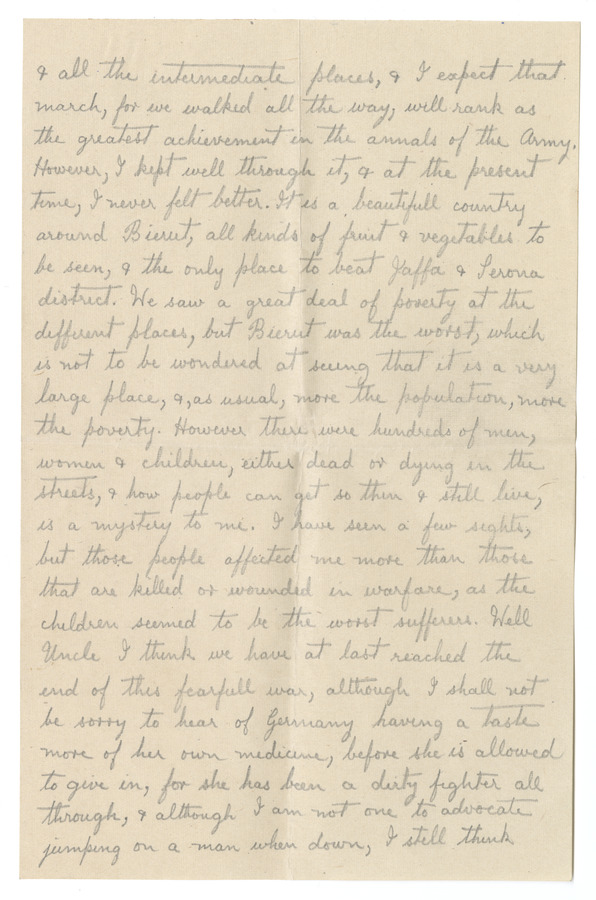 & all the intermediate places, & I expect that
march, for we walked all the way, will rank as
the greatest achievement in the annals of the Army.
However, I kept well through it, & at the present
time, I never felt better. It is a beautifull country
around Bierut, all kinds of fruit & vegetables to
be seen, & the only place to beat Jaffa & Serona
district. We saw a great deal of poverty at the
different places, but Bierut was the worst, which
is not to be wondered at seeing that it is a very
large place, &, as usual, more the population, more
the poverty. However there were hundreds of men,
women & children, either dead or dying in the
streets, & how people can get so thin & still live,
is a mystery to me. I have seen a few sights,
but those people affected me more than those
that are killed or wounded in warfare, as the
children seemed to be the worst sufferers. Well
Uncle I think we have at last reached the
end of this fearfull war, although I shall not
be sorry to hear of Germany having a taste
more of her own medicine, before she is allowed
to give in, for she has been a dirty fighter all
through, & although I am not one to advocate
jumping on a man when down, I still think